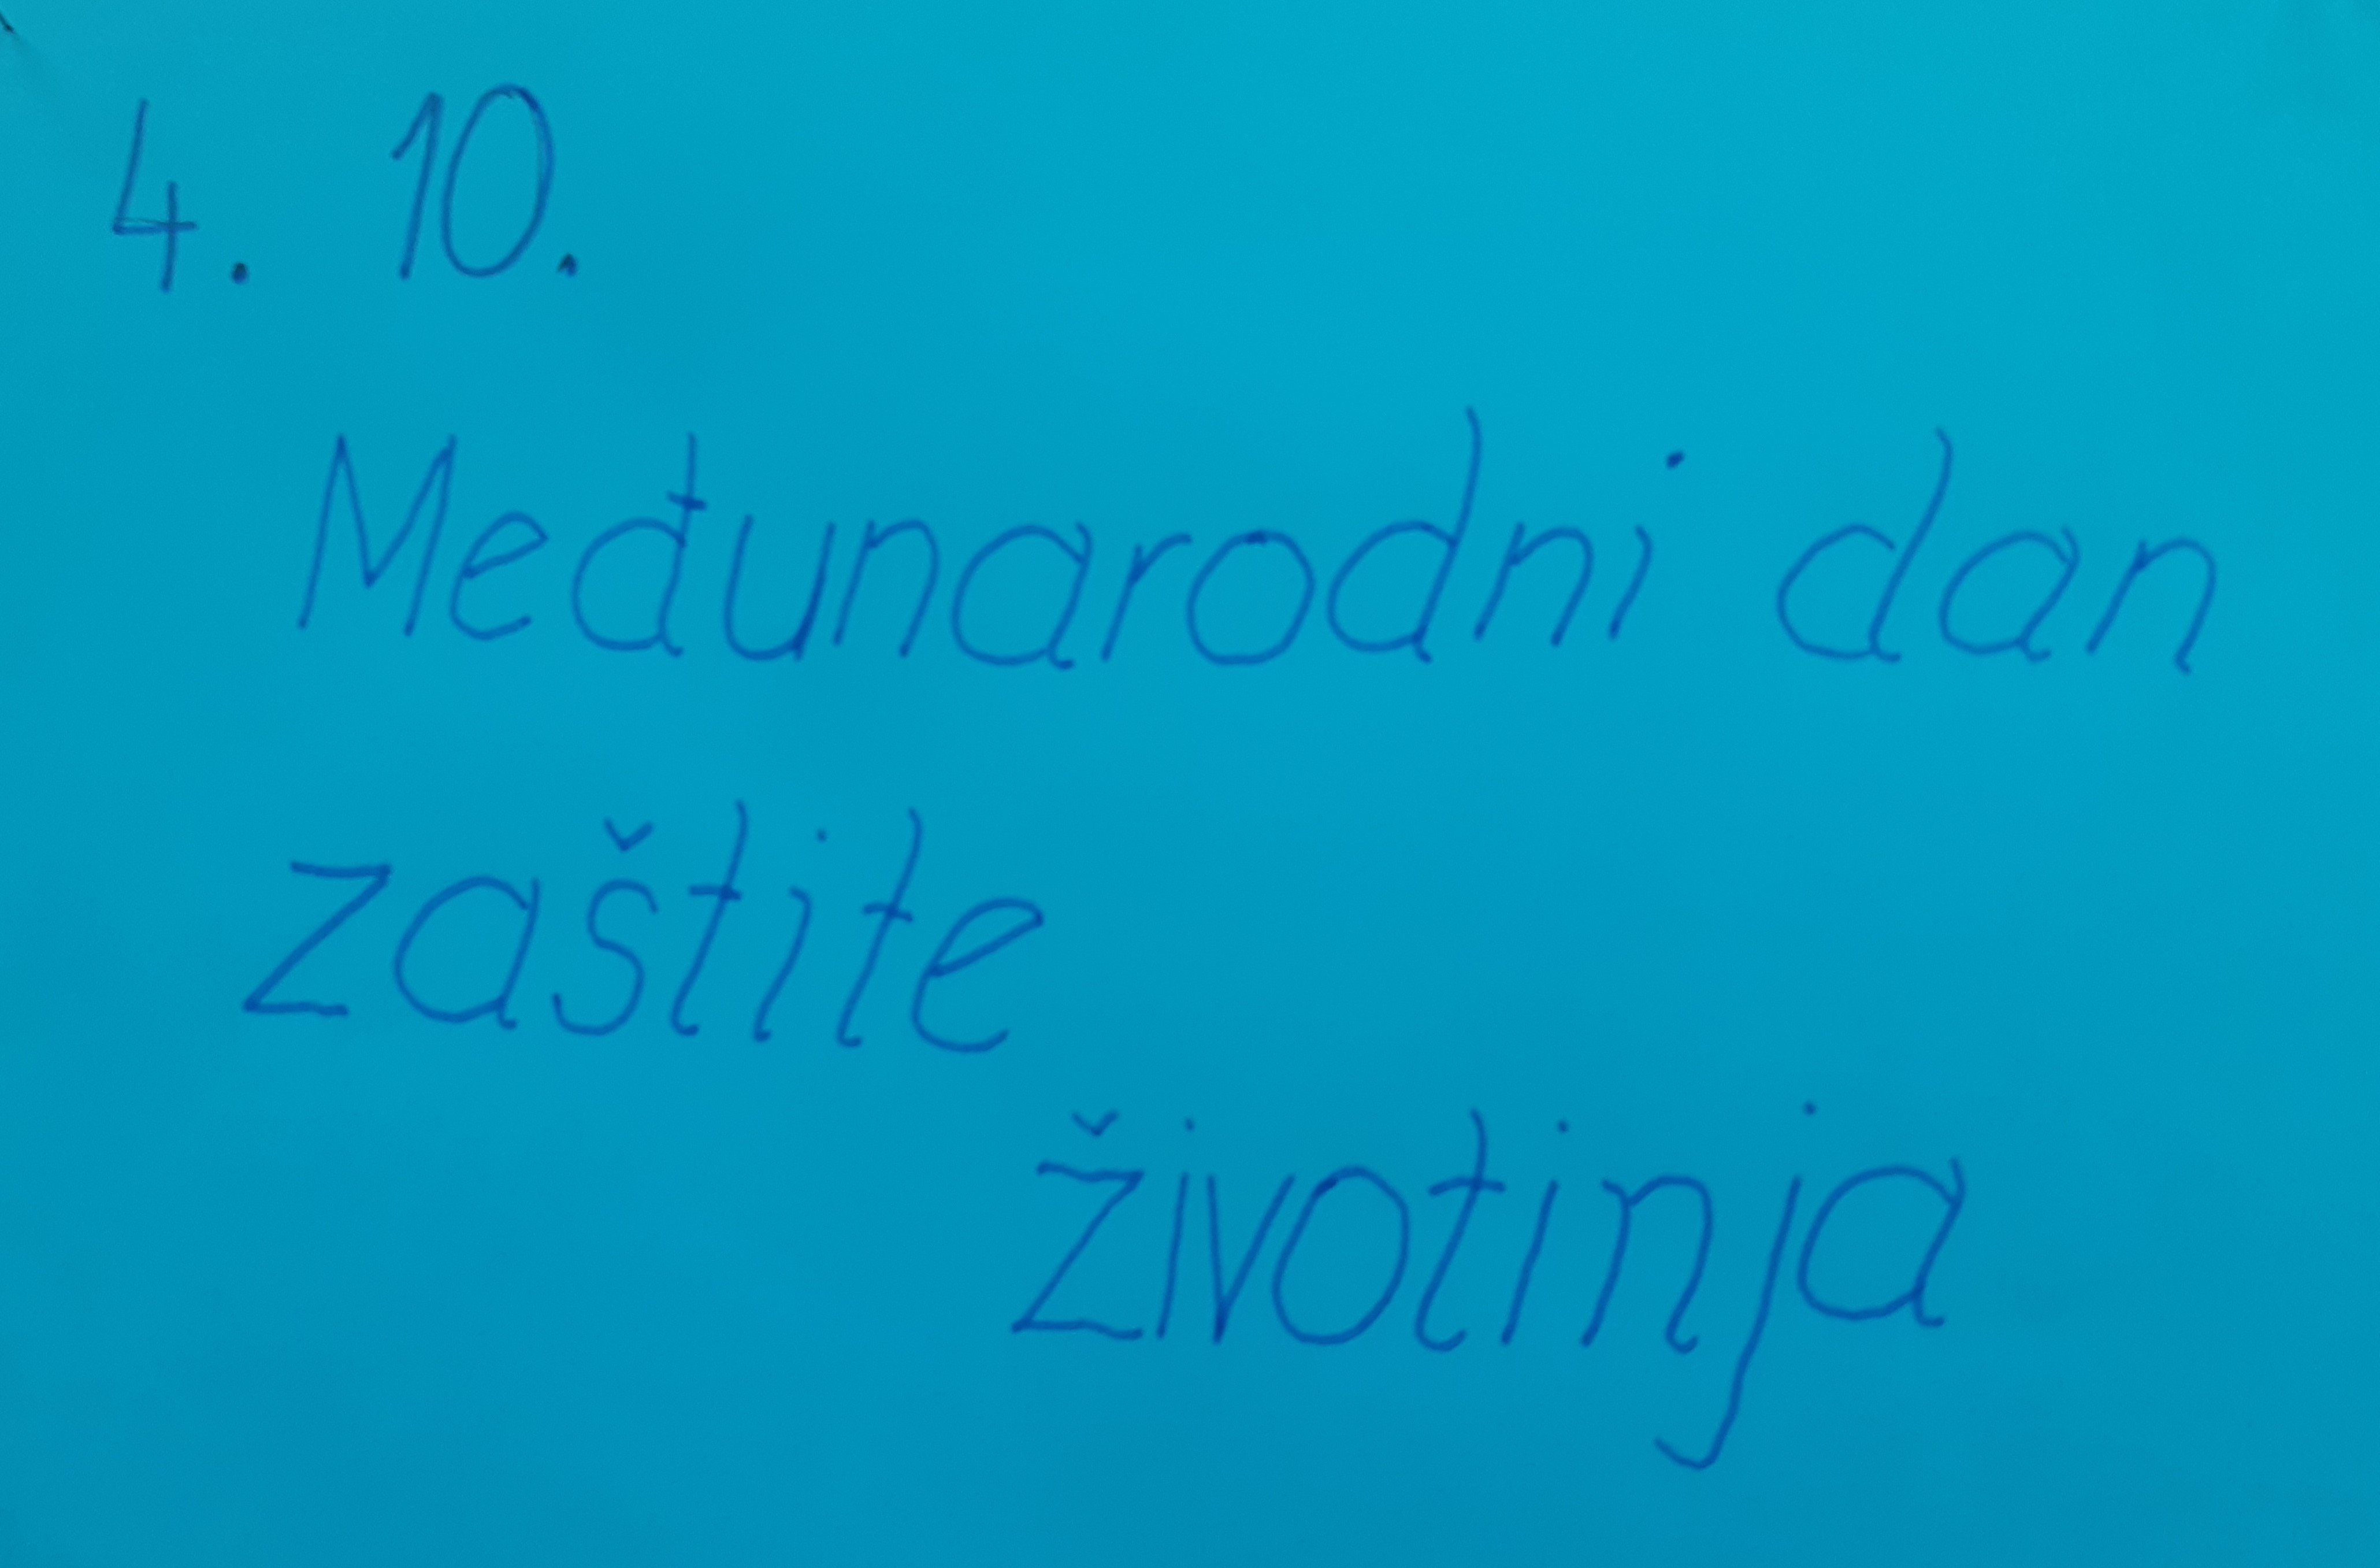 4. 10.
Međunarodni dan
zaštite
životinja